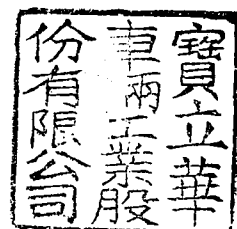 寶立華
車兩工業股
份有限公司